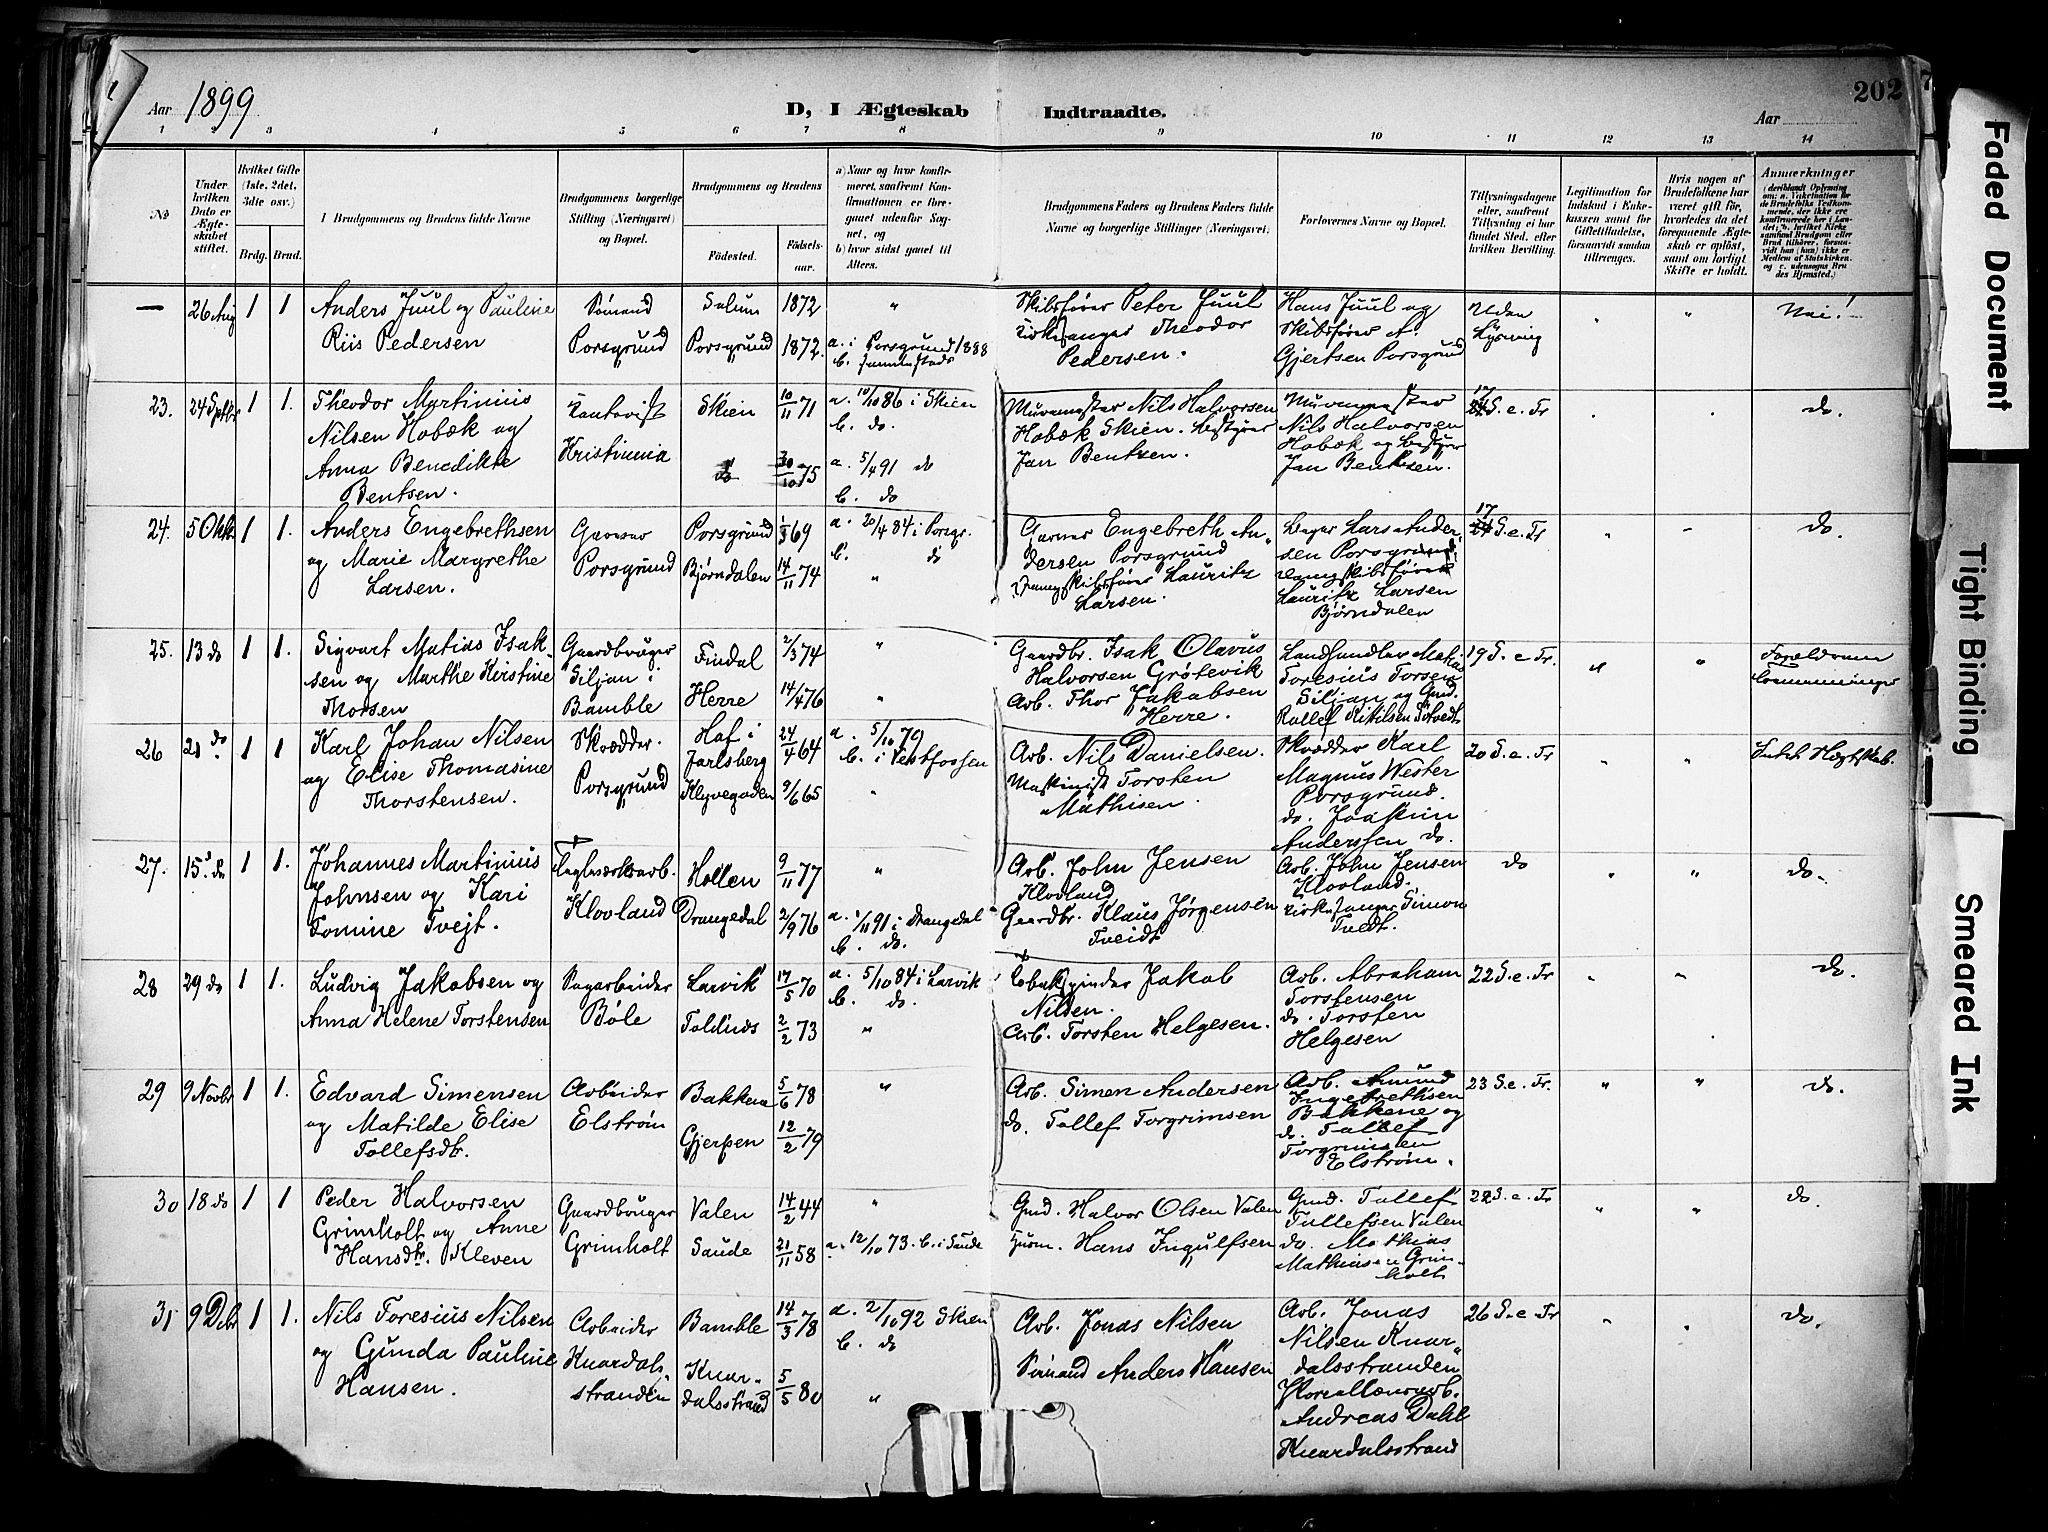 Aar 1899
D, I Ægteskab Indtraadte.
202
Aar
1 2 3 4 5 6 7 8 9 10 11 12 13 14
No
Under hvilken Dato er Ægteskabet stiftet.
Hvilket Gifte (1ste, 2det, 3die osv.)
Brdg. Brud.
Brudgommens og Brudens fulde Navne
Brudgommens borgerlige Stilling (Næringsvei) og Bopæl.
Brudgommens og Brudens
Födested.
Födselsaar.
a) Naar og hvor konfirmeret, saafremt Konfirmationen er foregaaet udenfor Sognet, og
b) hvor sidst gaaet til Alters.
Brudgommens Faders og Brudens Faders fulde Navne og borgerlige Stillinger (Næringsvei)
Forlovernes Navne og Bopæl.
Tillysningsdagene eller, saafremt Tillysning ei har fundet Sted, efter hvilken Bevilling.
Legitimation for Indskud i Enkekassen samt for Giftetilladelse, forsaavidt saadan tiltrænges.
Hvis nogen af Brudefolkene har været gift för, hvorledes da det foregaaende Ægteskab er oplöst, samt om lovligt Skifte er holdt.
Anmærkninger
— 26 Aug 1 1
Anders Juul og Pauline
Riis Pedersen
Sömand
Porsgrund
Solum 1872 "
Porsgrund 1872. a. i Porsgrund 1888
b. sammesteds
Skibsfører Peter Juul
Kirkesanger Theodor
Pedersen.
Hans Juul og
Skibsfører A.
Gjertsen Porsgrund
Uden
Lysning
" "
Nei!
23. 24 Septbr 1 1.
Theodor Martinius
Nilsen Hobæk og
Anna Benedikte
Bentsen.
Kristiania
Skien 10/11 71 a. 10/10 86 i Skien
b. do.
do 30/10 75 a. 5/4 91 do
b. do
Murermester Nils Halvorsen
Hobæk Skien. Bestyrer
Jan Bentzen.
Murermester
Nils Halvorsen
Hobæk og Bestyrer
Jan Bentzen.
17 S. e. Tr
do.
24. 5 Okt 1 1.
Anders Engebrethsen
og Marie Margrethe
Larsen.
Garver
Porsgrund
Porsgrund 1/3 69 a. 20/4 84 i Porsgr.
b. do
Bjørndalen 14/11 74 "
Garver Engebreth An„
dersen Porsgrund
Dampskibsfører Lauritz
Larsen.
Lars Ander
sen Porsgrund.
Dampskibsfører
Lauritz Larsen
Bjørndalen
17 S. e. Tr
do.
25. 13 do 1 1.
Sigvart Matias Isak-
sen og Marthe Kirstine
Thorsen
Gaardbruger
Siljan i
Bamble
Findal 2/3 74 "
Herre 14/4 76 "
Gaardbr. Isak Olavus
Halvorsen Grøtevik
Arb. Thor Jakobsen
Herre.
Landhandler Matias
Toresius Torsen
Siljan og Gmd.
Rollef Kittilsen Tvedt
19 S. e Tr.
" "
26 21 do 1 1
Karl Johan Nilsen
og Elise Thomasine
Thorstensen.
Skrædder.
Porsgrund
Hof i
Jarlsberg 24/4 64 a. 5/10 79
b. i Vestfossen
Klyvegaden 9/6 65 "
Arb. Nils Danielsen.
Maskinist Torsten
Mathisen.
Skrædder Karl
Magnus Wester
Porsgrund.
do. Joakim
Anderssen do.
20 S. e. Tr
" "
Intet Hægtskab.
27. 15. do 1 1.
Johannes Martinius
Johnsen og Kari
Tomine Tvejt.
Teglværksarb.
Klovland
Hollen 9/11 77 "
Drangedal 2/9 76 a. 1/11 91 i Drangedal
b. do.
Arb. John Jensen
Klovland
Gaardbr. Klaus Jørgensen
Tveidt
Arb. John Jensen
Klovland.
Kirkesanger Simon
Tvedt.
do
" "
do.
28 29 do 1 1.
Ludvig Jakobsen og
Anna Helene Torstensen
Sagarbeider
Bøle
Larvik 17/5 70 a. 5/10 84 i Larvik
b. do.
Toldnes 2/2 73 "
Jakob
Nilsen.
Arb. Torsten Helgesen.
Arb. Abraham
Torstensen
do. Torsten
Helgesen
22 S. e. Tr
" "
do.
29 9 Novbr 1 1.
Edvard Simensen
og Matilde Elise
Tollefsdtr.
Arbeider
Elstrøm
Bakkene 5/6 78 "
Gjerpen 12/2 79
Arb. Simen Andersen
do. Tollef Torgrimsen
Arb. Amund
Ingebrethsen
Bakkene og
do. Tollef
Torgrimsen
Elstrøm.
23 S. e. Tr.
" "
do.
30 18 do 1 1
Peder Halvorsen
Grimholt og Anne
Hansdtr. Kleven
Gaardbruger
Grimholt
Valen 14/2 44 "
Saude 21/11 58 a. 12/10 73. b. i Saude
Gmd. Halvor Olsen Valen
Husm. Hans Ingulfsen
Gmd. Tollef
Tollefsen Valen
do. Mathias
Mathiasen Grim-
holt
22 S. e. Tr
" "
do.
31 9 Debr 1 1.
Nils Toresius Nilsen
og Gunda Pauline
Hansen.
Arbeider
Knardals„
stranden
Bamble 14/3 78 a. 2/10 92 Skien
b. do
Knar„
dalsstrand 5/5 80 "
Arb. Jonas Nilsen
Sömand Anders Hansen
Arb. Jonas
Nilsen Knar„
dalsstranden
Andreas Dahl
Knardalsstrand
26 S. e Tr
" "
do.
Faded Document
Tight Binding
Smeared Ink